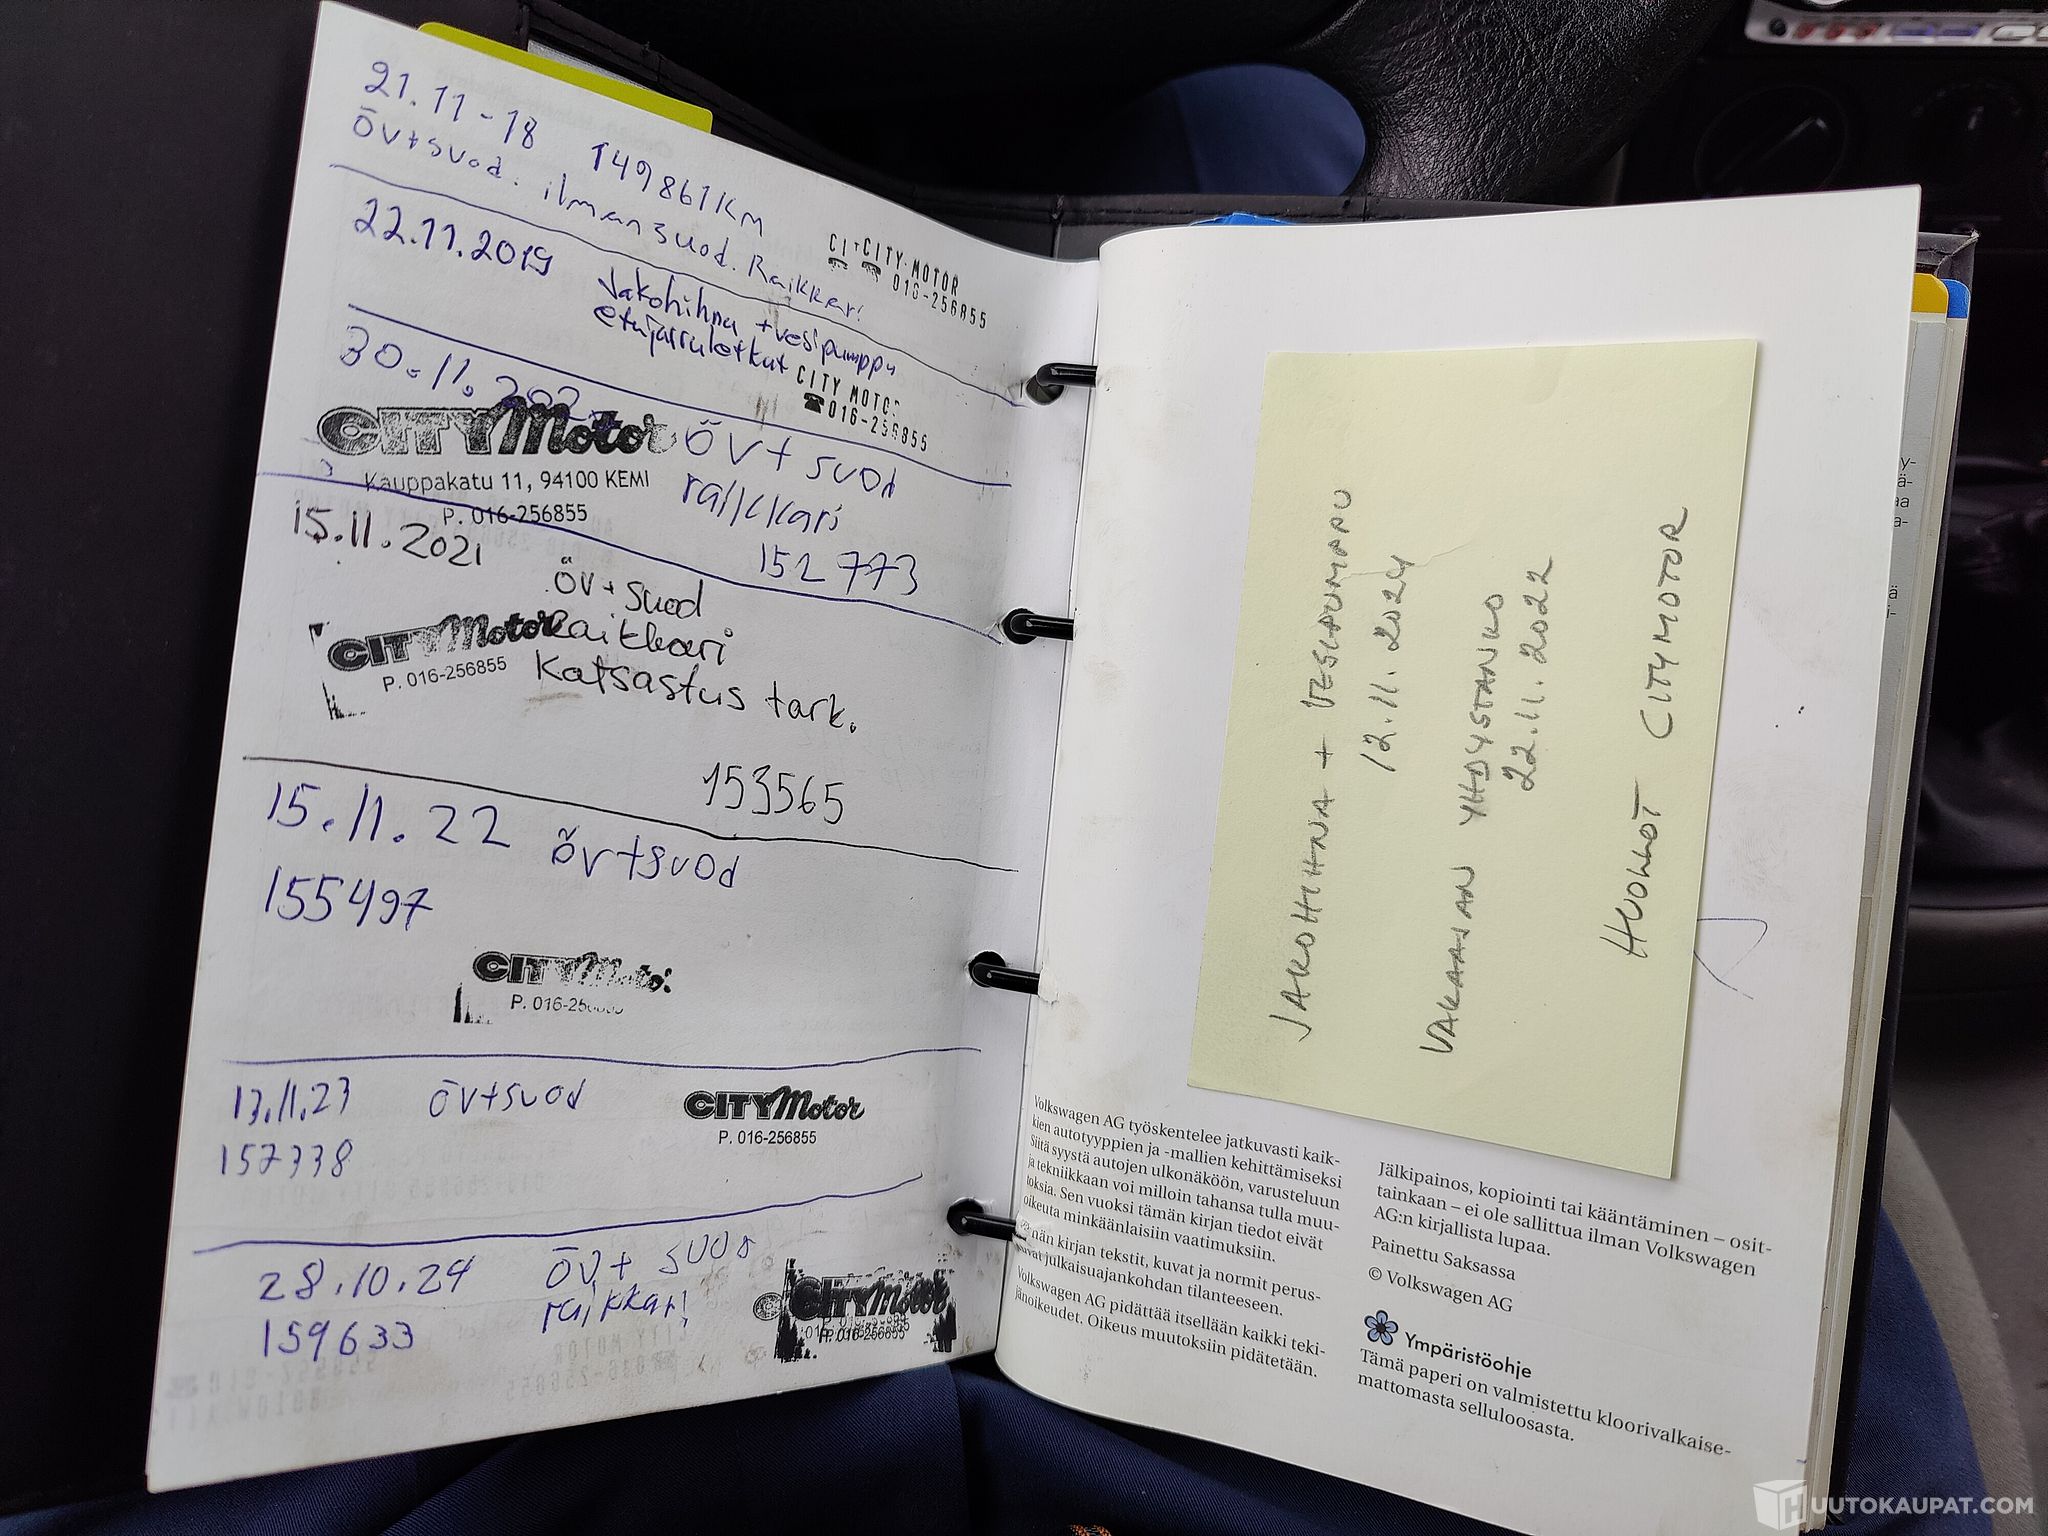 21.11-18 149861KM
ÖV+suod. ilmansuod. Raikkari
CITY-MOTOR
016-256855
22.11.2019 Jakohihna + vesipumppu
etujarruletkut
CITY MOTOR
☎016-256855
30.11. ÖV+ suod
raikkari
152 773
CITY Motor
Kauppakatu 11, 94100 KEMI
P. 016-256855
15.11.2021 ÖV+ suod
Raikkari
Katsastus tark.
CITY Motor
P. 016-256855
153565
15.11.22 öv+suod
155497
CITY Motor
P. 016-256855
13.11.23 öv+suod
157338
CITY Motor
P. 016-256855
28.10.24 öv+ suod
raikkari
159633
CITY Motor
P. 016-256855
JAKOHIHNA + VESIPUMPPU
12.11.2024
VAKAAJAN YHDYSTANKO
22.11.2022
HUOLLOT CITYMOTOR
Volkswagen AG työskentelee jatkuvasti kaik-
kien autotyyppien ja -mallien kehittämiseksi
Siitä syystä autojen ulkonäköön, varusteluun
ja tekniikkaan voi milloin tahansa tulla muu-
toksia. Sen vuoksi tämän kirjan tiedot eivät
oikeuta minkäänlaisiin vaatimuksiin.
nän kirjan tekstit, kuvat ja normit perus-
uvat julkaisuajankohdan tilanteeseen.
Volkswagen AG pidättää itsellään kaikki teki-
jänoikeudet. Oikeus muutoksiin pidätetään.
Jälkipainos, kopiointi tai kääntäminen – osit-
tainkaan – ei ole sallittua ilman Volkswagen
AG:n kirjallista lupaa.
Painettu Saksassa
© Volkswagen AG
Ympäristöohje
Tämä paperi on valmistettu kloorivalkaise-
mattomasta selluloosasta.
HUUTOKAUPAT.COM